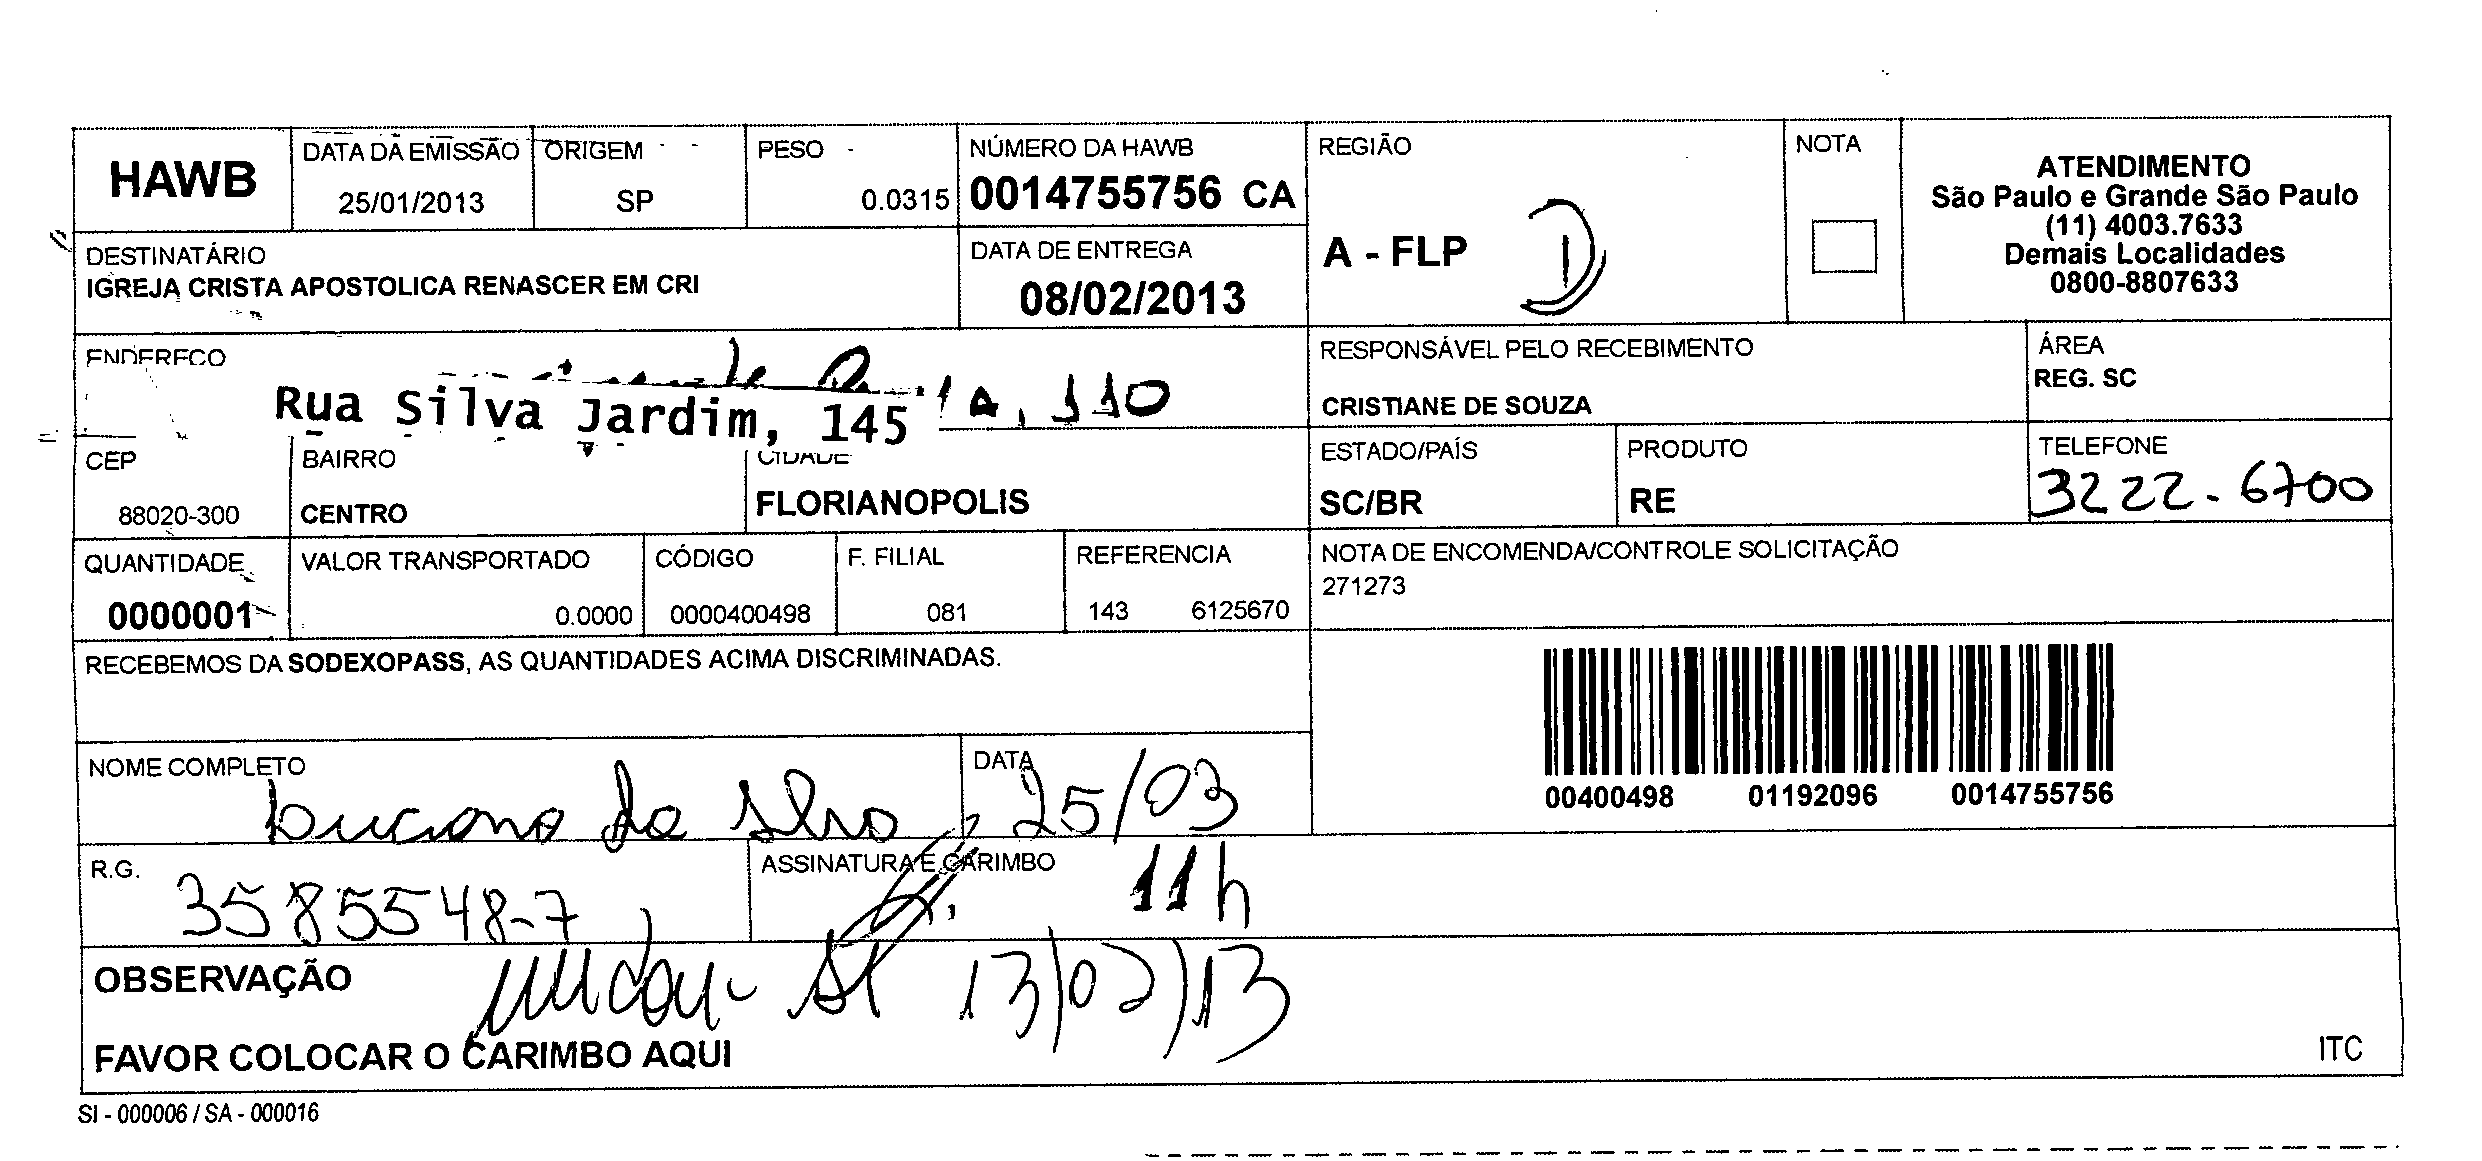 HAWB
DATA DA EMISSÃO
25/01/2013
ORIGEM
SP
PESO
0.0315
NÚMERO DA HAWB
0014755756 CA
REGIÃO
A - FLP D
NOTA
ATENDIMENTO
São Paulo e Grande São Paulo
(11) 4003.7633
Demais Localidades
0800-8807633
DESTINATÁRIO
IGREJA CRISTA APOSTOLICA RENASCER EM CRI
DATA DE ENTREGA
08/02/2013
ENDEREÇO
Rua Silva Jardim, 145
110
RESPONSÁVEL PELO RECEBIMENTO
CRISTIANE DE SOUZA
ÁREA
REG. SC
CEP
88020-300
BAIRRO
CENTRO
CIDADE
FLORIANOPOLIS
ESTADO/PAÍS
SC/BR
PRODUTO
RE
TELEFONE
3222-6700
QUANTIDADE
0000001
VALOR TRANSPORTADO
0.0000
CÓDIGO
0000400498
F. FILIAL
081
REFERENCIA
143 6125670
NOTA DE ENCOMENDA/CONTROLE SOLICITAÇÃO
271273
RECEBEMOS DA SODEXOPASS, AS QUANTIDADES ACIMA DISCRIMINADAS.
00400498 01192096 0014755756
NOME COMPLETO
Luciano da Silva
DATA
25/03
R.G.
3585548-7
ASSINATURA E CARIMBO
11h
OBSERVAÇÃO
13/02/13
FAVOR COLOCAR O CARIMBO AQUI
ITC
SI - 000006 / SA - 000016